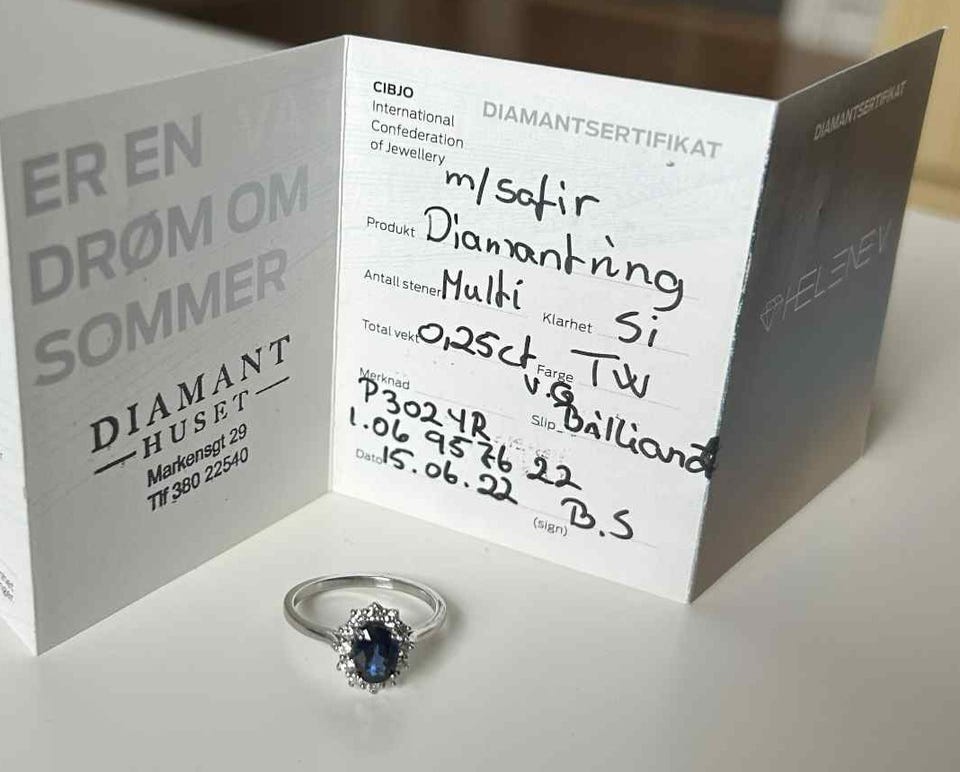 ER EN
DRØM OM
SOMMER
DIAMANT
HUSET
Markensgt 29
Tlf 380 22540
CIBJO
International
Confederation
of Jewellery
DIAMANTSERTIFIKAT
m/safir
Produkt Diamantring
Antall stener Multi
Klarhet Si
Total vekt 0,25ct
Farge TW
Merknad
v.G
Slip Brilliant
P302YR
1.06 9576 22
Dato 15.06.22
(sign) B.S
DIAMANTSERTIFIKAT
HELENE V